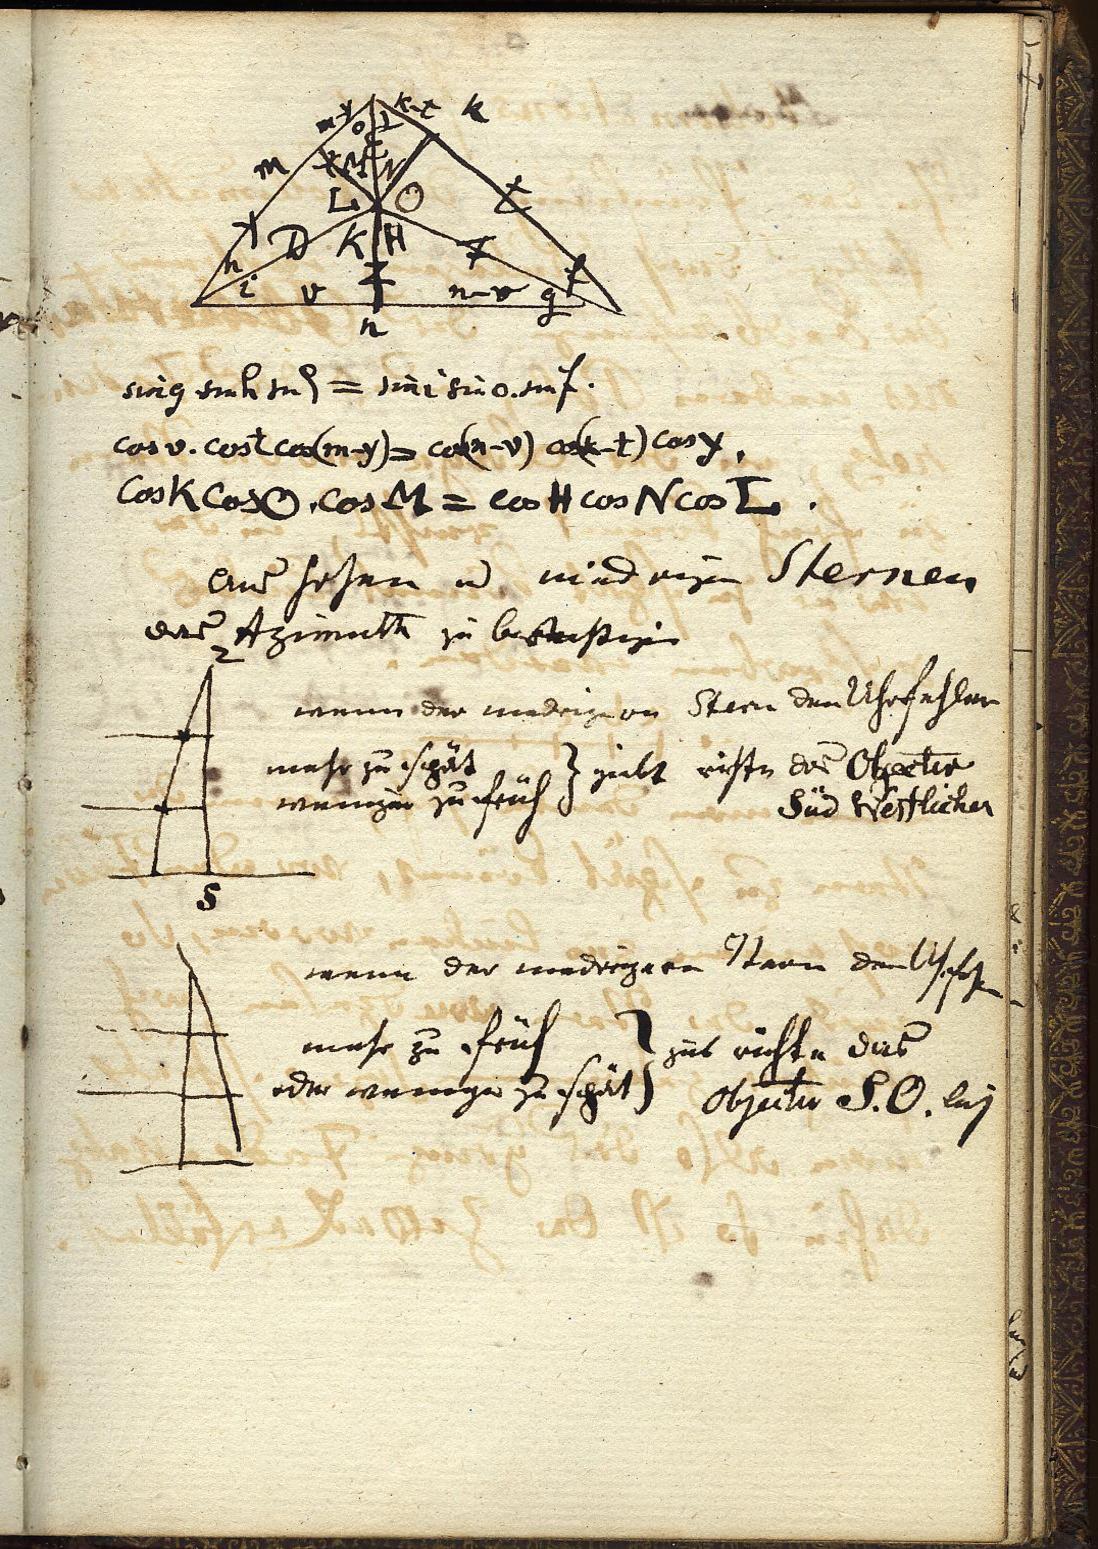 m-y k-t k
m O l
L O t
h D K H f
i v n-v g
n
sin g sin h sin l = sin i sin o. sin f.
cos v. cos t cos(m-y) = cos(n-v) cos(k-t) cos y.
Cos K Cos O. cos M = cos H cos N cos L.
Aus hohen u niedrigen Sternen
das Azimuth zu berichtigen
Z
wenn der niedrigere Stern den Uhrfehler
mehr zu spät
weniger zu früh } giebt richte das Objectiv
Süd Westlicher
S
wenn der niedrigere Stern den Uhrfehler
mehr zu früh
oder weniger zu spät } gibt richte das
Objectiv S.O. lich